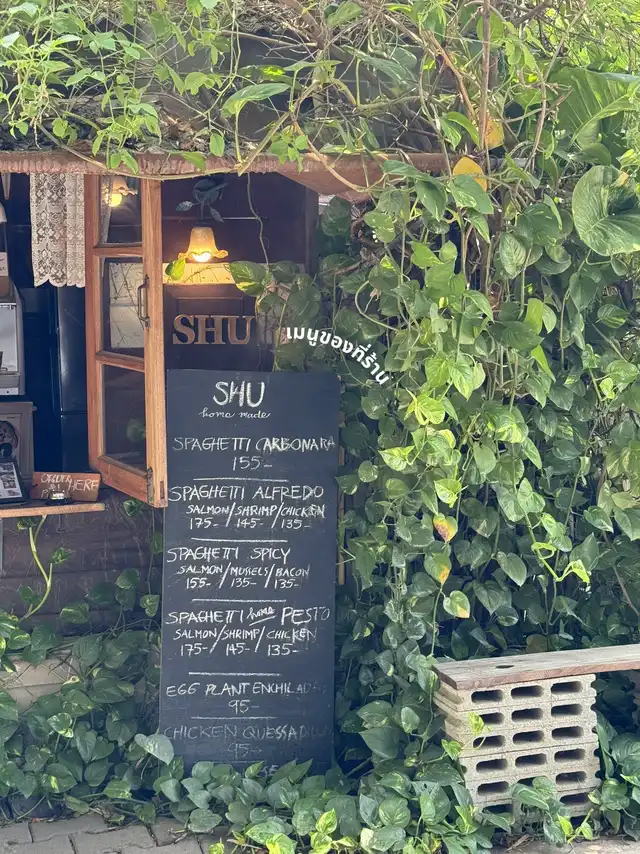 SHU
เมนูของที่ร้าน
SHU
home made
SPAGHETTI CARBONARA
155-
SPAGHETTI ALFREDO
SALMON/SHRIMP/CHICKEN
175-/145-/135-
SPAGHETTI SPICY
SALMON/MUSSELS/BACON
155-/135-/135-
SPAGHETTI home PESTO
SALMON/SHRIMP/CHICKEN
175-/145-/135-
EGG PLANT ENCHILADA
95-
CHICKEN QUESSADILLA
95-
ORDER
HERE